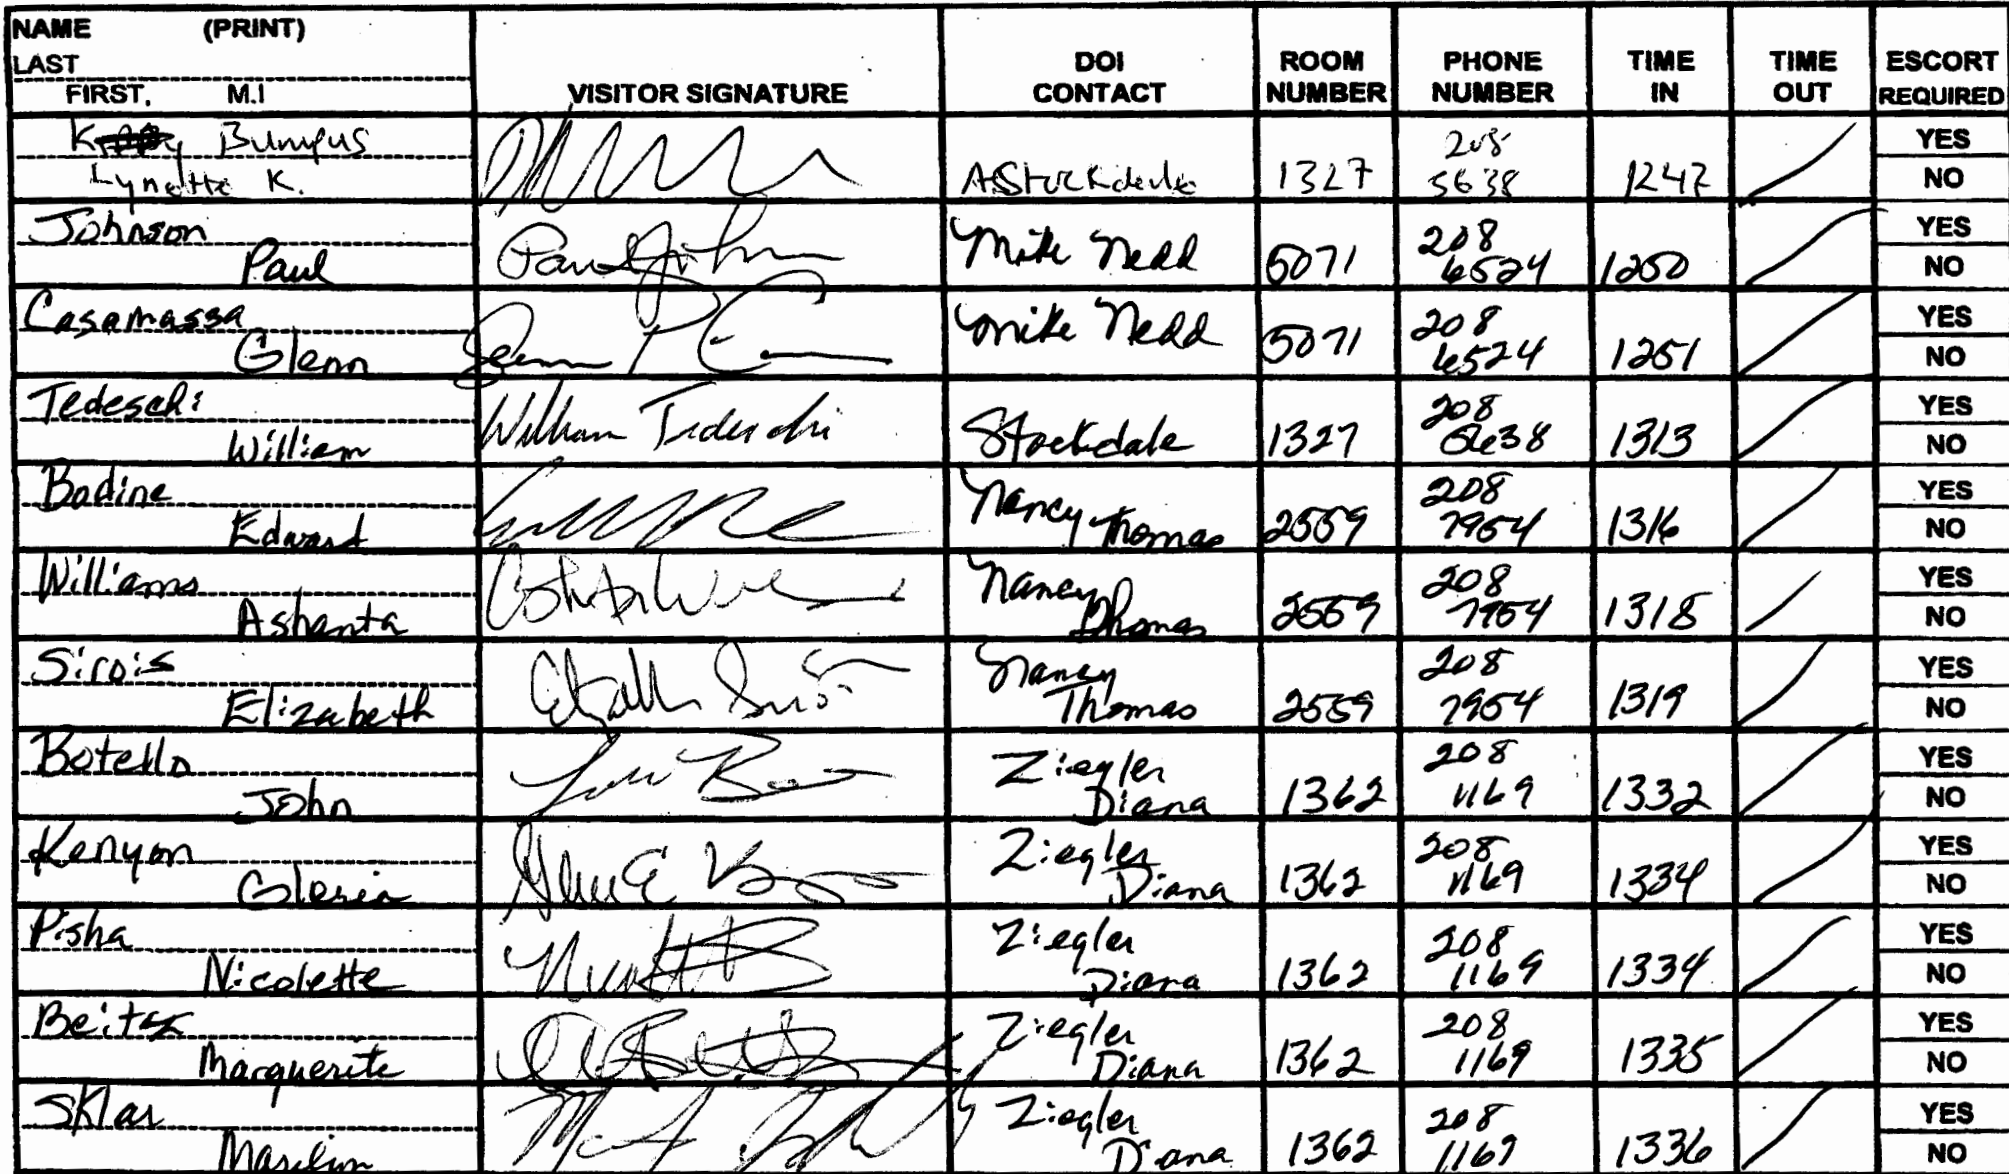 NAME (PRINT)
LAST
FIRST, M.I
VISITOR SIGNATURE
DOI CONTACT
ROOM NUMBER
PHONE NUMBER
TIME IN
TIME OUT
ESCORT REQUIRED
Bumpus
Lynette K.
A Stockdale 1327 208- 5638 1247 YES NO
Johnson
Paul
Paul Johnson
Mike Nedd 5071 208 6524 1250 YES NO
Casamassa
Glenn
Mike Nedd 5071 208 6524 1251 YES NO
Tedeschi
William
William Tedeschi
Stockdale 1327 208 5638 1313 YES NO
Bodine
Edward
Nancy Thomas 2559 208 7954 1316 YES NO
Williams
Ashanta
Nancy Thomas 2559 208 7954 1318 YES NO
Sirois
Elizabeth
Elizabeth Sirois
Nancy Thomas 2559 208 7954 1319 YES NO
Botello
John
Ziegler Diana 1362 208 1169 1332 YES NO
Kenyon
Gloria
Ziegler Diana 1362 208 1169 1334 YES NO
Pisha
Nicolette
Ziegler Diana 1362 208 1169 1334 YES NO
Beitz
Marguerite
Ziegler Diana 1362 208 1169 1335 YES NO
Sklar
Ziegler Diana 1362 208 1169 1336 YES NO